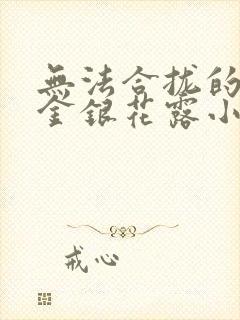 無法合拢的
金銀花露小
戒心